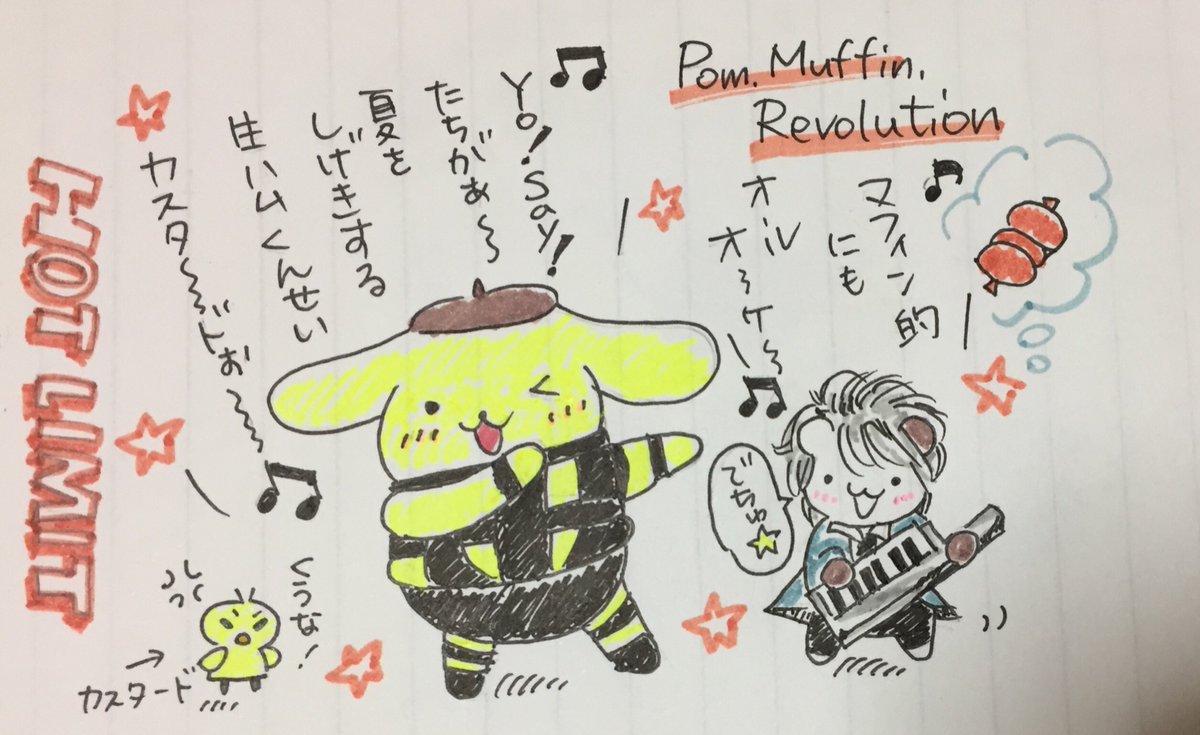 Pom. Muffin.
Revolution
Yo! Say!
たちがぁ〜〜
夏を
しげきする
生ハムくんせい
カスタ〜〜ドぉ〜〜〜
マフィン的
にも
オール
オ〜ケ〜〜
でちゅ☆
くうな!
カスタード
HOT LIMIT